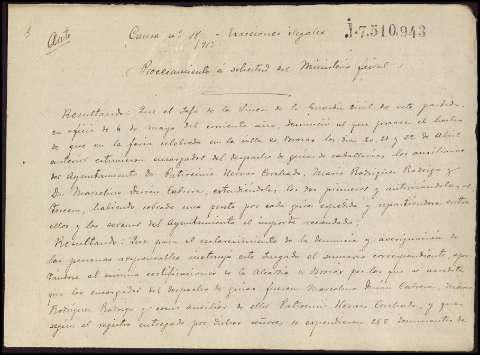 Auto
Causa nº 18/913 - Exacciones ilegales
J-7.510,943
(Procesamiento a solicitud del Ministerio fiscal)
Resultando: Que el Jefe de la Linea de la Guardia civil de este partido,
en oficio de 6 de mayo del corriente año, denunció al que provee el hecho
de que en la feria celebrada en la villa de Brozas los dias 20, 21 y 22 de Abril
anterior estuvieron encargados del despacho de guias de caballerias, los auxiliares
del Ayuntamiento Dn Patrocinio Corchado, Mario Rodriguez Rodrigo y
Dn Marcelino Durán Cabrera, extendiéndolas los dos primeros y autorizándolas el
tercero, habiendo cobrado una peseta por cada guia expedida y repartiendose entre
ellos y los serenos del Ayuntamiento el importe recaudado;
Resultando: Que para el esclarecimiento de la denuncia y averiguación de
las personas responsables instruyo este Juzgado el sumario correspondiente, apor-
tandose al mismo certificaciones de la Alcaldia de Brozas por las que se acredita
que los encargados del despacho de guias fueron Marcelino Durán Cabrera, Mario
Rodriguez Rodrigo y como auxiliar de ellos Patrocinio Corchado, y que
según el registro entregado por dichos señores se expendieron 268 documentos de